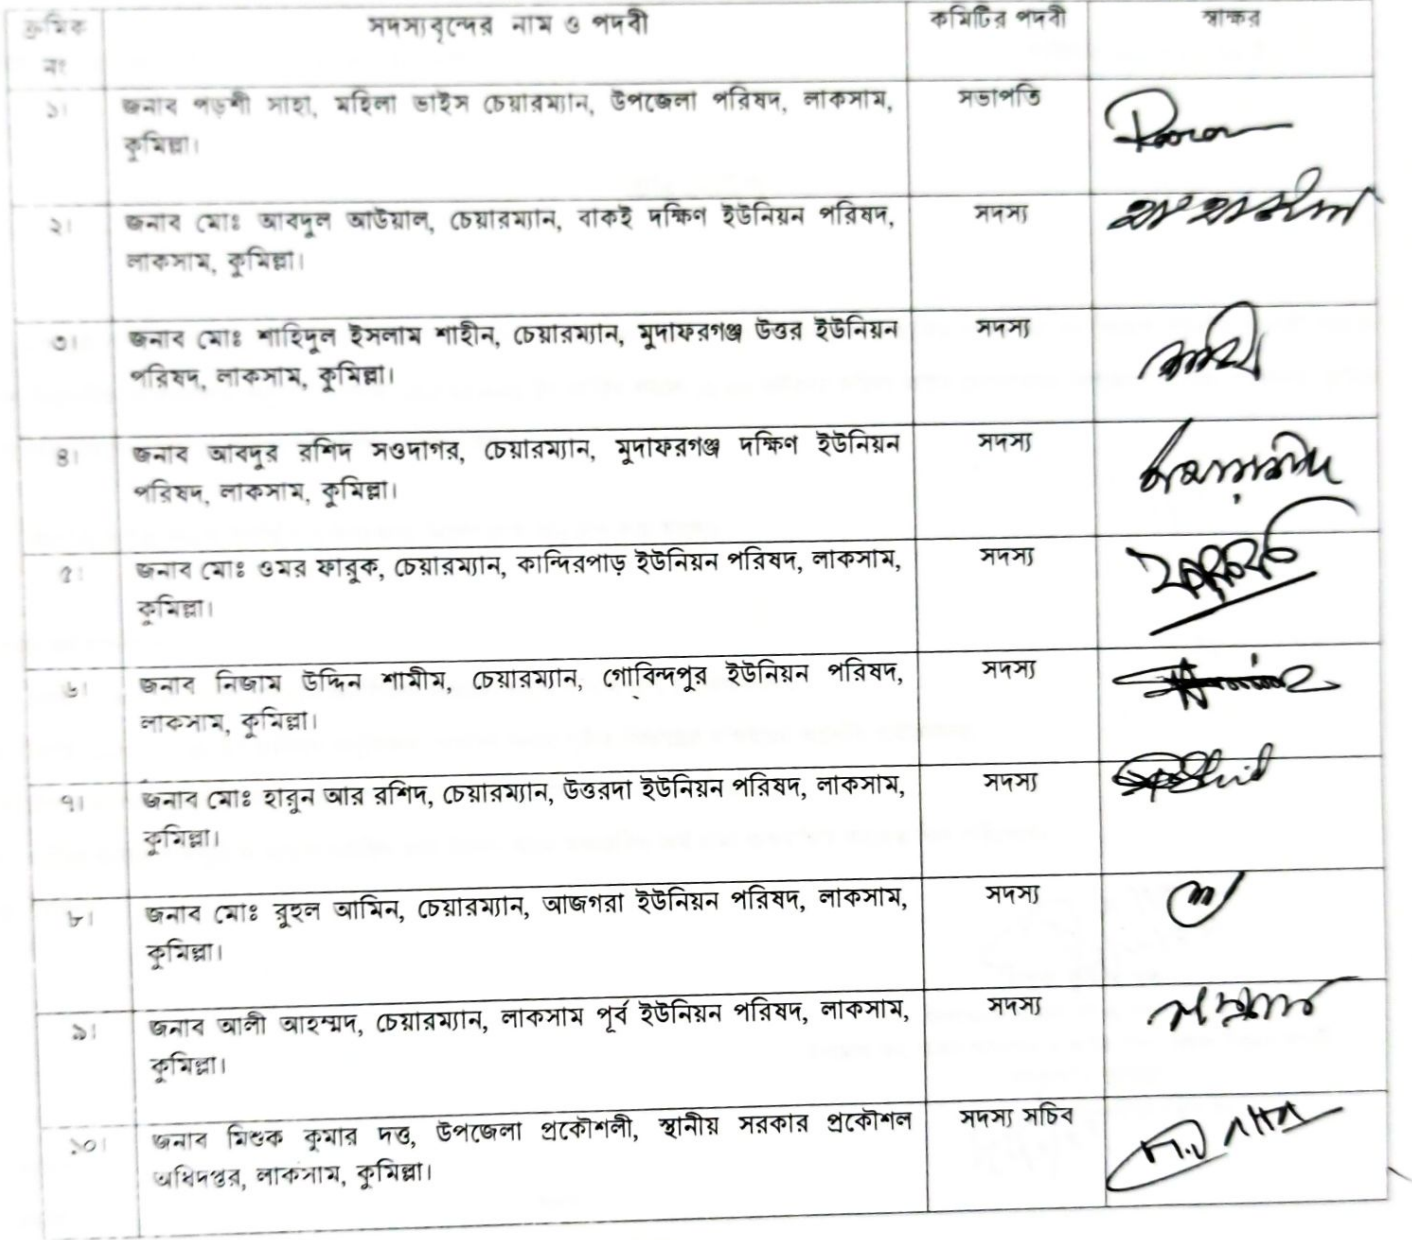 ক্রমিক সদস্যবৃন্দের নাম ও পদবী কমিটির পদবী স্বাক্ষর
নং
১। জনাব পড়শী সাহা, মহিলা ভাইস চেয়ারম্যান, উপজেলা পরিষদ, লাকসাম, সভাপতি
কুমিল্লা।
২। জনাব মোঃ আবদুল আউয়াল, চেয়ারম্যান, বাকই দক্ষিণ ইউনিয়ন পরিষদ, সদস্য
লাকসাম, কুমিল্লা।
৩। জনাব মোঃ শাহিদুল ইসলাম শাহীন, চেয়ারম্যান, মুদাফরগঞ্জ উত্তর ইউনিয়ন সদস্য
পরিষদ, লাকসাম, কুমিল্লা।
৪। জনাব আবদুর রশিদ সওদাগর, চেয়ারম্যান, মুদাফরগঞ্জ দক্ষিণ ইউনিয়ন সদস্য
পরিষদ, লাকসাম, কুমিল্লা।
৫। জনাব মোঃ ওমর ফারুক, চেয়ারম্যান, কান্দিরপাড় ইউনিয়ন পরিষদ, লাকসাম, সদস্য
কুমিল্লা।
৬। জনাব নিজাম উদ্দিন শামীম, চেয়ারম্যান, গোবিন্দপুর ইউনিয়ন পরিষদ, সদস্য
লাকসাম, কুমিল্লা।
৭। জনাব মোঃ হারুন আর রশিদ, চেয়ারম্যান, উত্তরদা ইউনিয়ন পরিষদ, লাকসাম, সদস্য
কুমিল্লা।
৮। জনাব মোঃ রুহুল আমিন, চেয়ারম্যান, আজগরা ইউনিয়ন পরিষদ, লাকসাম, সদস্য
কুমিল্লা।
৯। জনাব আলী আহম্মদ, চেয়ারম্যান, লাকসাম পূর্ব ইউনিয়ন পরিষদ, লাকসাম, সদস্য
কুমিল্লা।
১০। জনাব মিশুক কুমার দত্ত, উপজেলা প্রকৌশলী, স্থানীয় সরকার প্রকৌশল সদস্য সচিব
অধিদপ্তর, লাকসাম, কুমিল্লা।